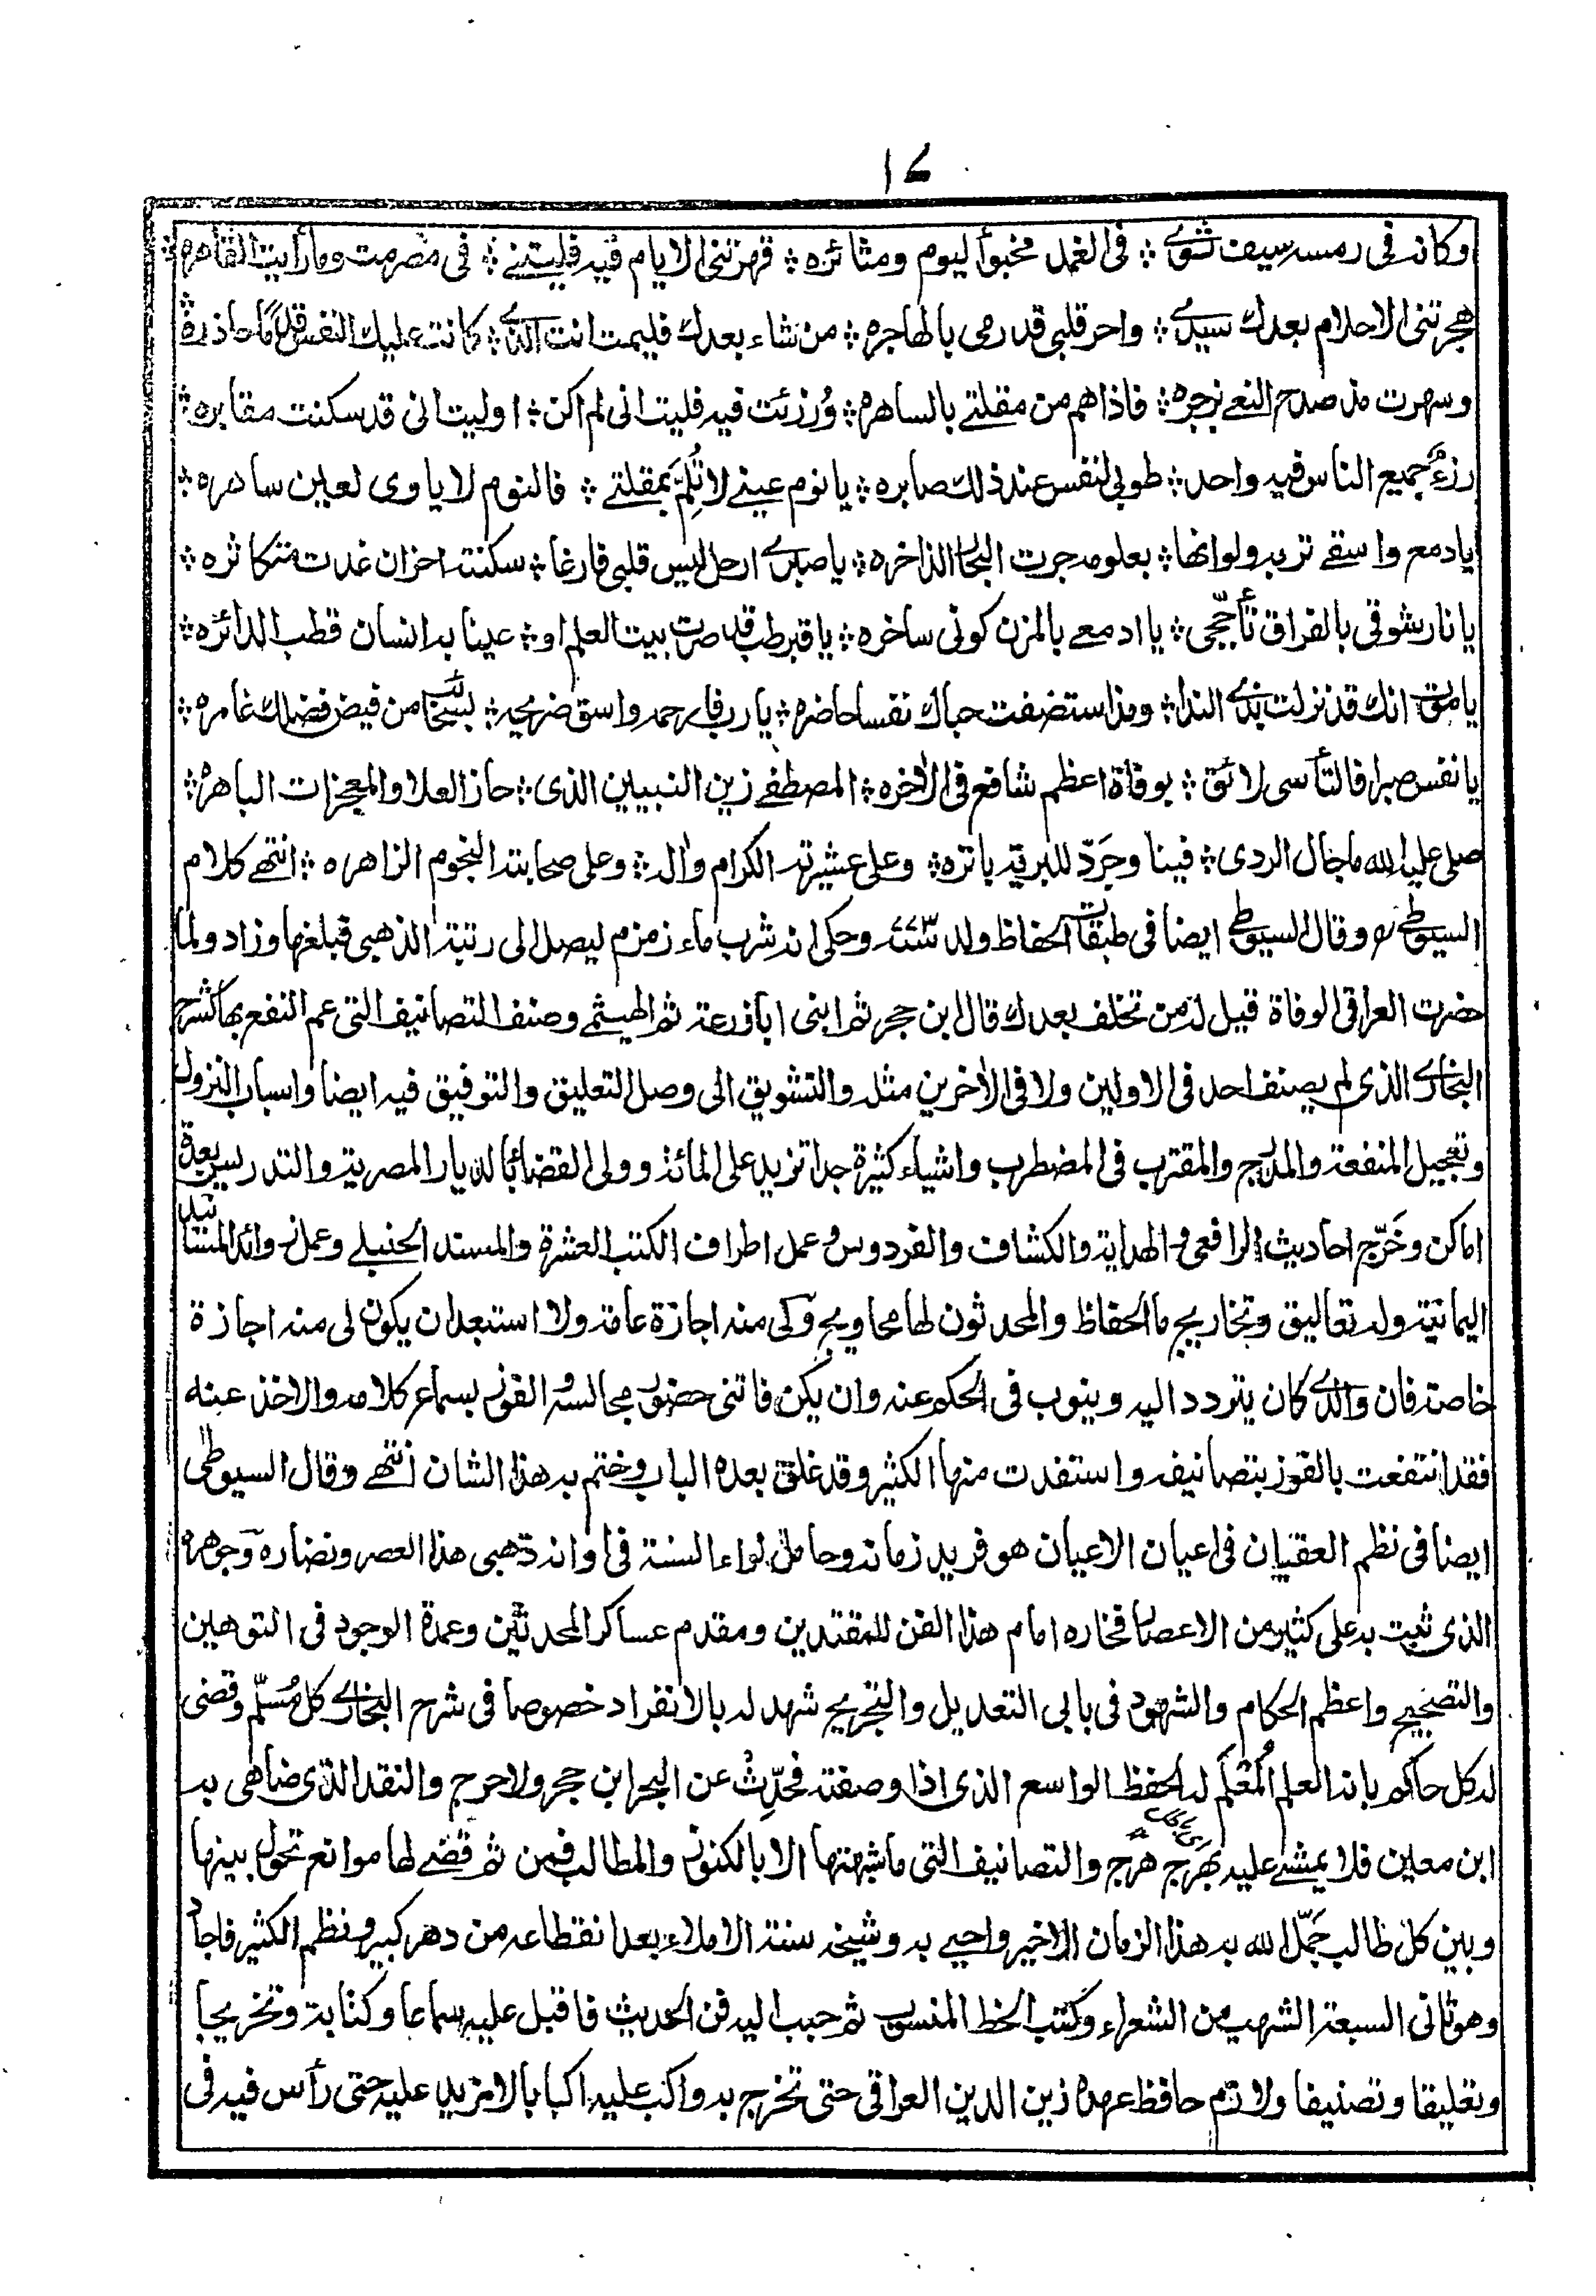 ١٤
وكانه فى رمسه سيف ثوى ؞ فى الغمد مخبوأ ليوم ومثائره ؞ قهرتنى الايام فيه فليتنى ؞ فى مصرمت ومارأيت القاهره ؞
هجرتنى الاحلام بعدك سيدى ؞ واحر قلبى قدرمى بالهاجره ؞ من شاء بعدك فليمت انت الذى ؞ كانت عليك النفس قدمًا حاذرة
وسهرت مذ صدح النعى بزجره ؞ فاذاهم من مقلتى بالساهره ؞ ورزئت فيه فليت انى لم اكن ؞ اوليت انى قد سكنت مقابره ؞
رزءٌ جميع الناس فيه واحد ؞ طوبى لنفس عند ذلك صابره ؞ يانوم عينى لا تُلِمَّ بمقلتى ؞ فالنوم لا ياوى لعين ساهره ؞
يادمع واسقى تربه ولوانها ؞ بعلومه جرت البحار الذاخره ؞ ياصبرى ارحل ليس قلبى فارغا ؞ سكنته احزان غدت متكاثره ؞
يا نارشوقى بالفراق تأجّجى ؞ يا ادمعى بالمزن كونى ساخره ؞ ياقبر طب قد صرت بيت العلم او ؞ عينا به انسان قطب الدائره ؞
ياموت انك قد نزلت بذى الندا ؞ ومذ استضفت حباك نفسا حاضره ؞ يارب فارحمه واسق ضريحه ؞ بسحائب من فيض فضلك غامره ؞
يانفس صبرا فالتأسى لائق ؞ بوفاة اعظم شافع فى الاخره ؞ المصطفى زين النبيين الذى ؞ حاز العلا والمعجزات الباهره ؞
صلى عليه الله ما جال الردى ؞ فينا وجَرَدّ للبرية باتره ؞ وعلى عشيرته الكرام واله ؞ وعلى صحابته النجوم الزاهره ؞ انتهى كلام
السيوطى وقال السيوطى ايضا فى طبقات الحفاظ ولد سنة وحكى انه شرب ماء زمزم ليصل الى رتبة الذهبى فبلغها وزاد ولما
حضرت العراقى الوفاة قيل له من تخلف بعدك قال ابن حجر ثم ابنى ابازرعة ثم الهيثمى وصنف التصانيف التى عم النفع بها كشرح
البخارى الذى لم يصنف احد فى الاولين ولا فى الأخرين مثله والتشويق الى وصل التعليق والتوفيق فيه ايضا واسباب النزول
وتعجيل المنفعة والمدرج والمقترب فى المضطرب واشياء كثيرة جدا تزيد على المائة وولى القضاء بالديار المصرية والتدريس بعدة
اماكن وخَرّج احاديث الرافعى والهداية والكشاف والفردوس وعمل اطراف الكتب العشرة والمسند الحنبلى وعمل زوائد المسانيد
اليمانية وله تعاليق وتخاريج ما الحفاظ والمحدثون لها محاويج ولى منه اجازة عامة ولا استبعد ان يكون لى منه اجازة
خاصة فان والدى كان يتردد اليه وينوب فى الحكم عنه وان يكن فاتنى حضور مجالسه والفوز بسماع كلامه والاخذ عنه
فقد انتفعت بالفوز بتصانيفه واستفدت منها الكثير وقد غلق بعده الباب وختم به هذا الشان انتهى وقال السيوطى
ايضا فى نظم العقيان فى اعيان الاعيان هو فريد زمانه وحامل لواء السنة فى اوانه ذهبى هذا العصر ونضاره وجوهره
الذى ثبت به على كثير من الاعصار فخاره امام هذا الفن للمقتدين ومقدم عساكر المحدثين وعمدة الوجود فى التوهين
والتصحيح واعظم الحكام والشهود فى بابى التعديل والتجريح شهد له بالانفراد خصوصا فى شرح البخارى كل مُسلّم وقضى
له كل حاكم بانه العلم المُعلَّم له الحفظ الواسع الذى اذا وصفته فحدِّث عن البحر ابن حجر ولاحرج والنقد الذى ضاهى به
ابن معين فلا يمشى عليه بهرج هرج والتصانيف التى ماشبهتها الا بالكنوز والمطالب فمن ثم قضى لها موانع تحول بينها
وبين كل طالب جَمّل الله به هذا الزمان الاخير واحيى به وشيخه سنة الاملاء بعد انقطاعه من دهر كبير ونظم الكثير فاجاد
وهو ثانى السبعة الشهب من الشعراء وكتب الخط المنسوب ثم حبب اليه فن الحديث فاقبل عليه سماعا وكتابة وتخريجا
وتعليقا وتصنيفا ولازم حافظ عهده زين الدين العراقى حتى تخرج به واكب عليه اكبابا لا مزيد عليه حتى رأس فيه فى